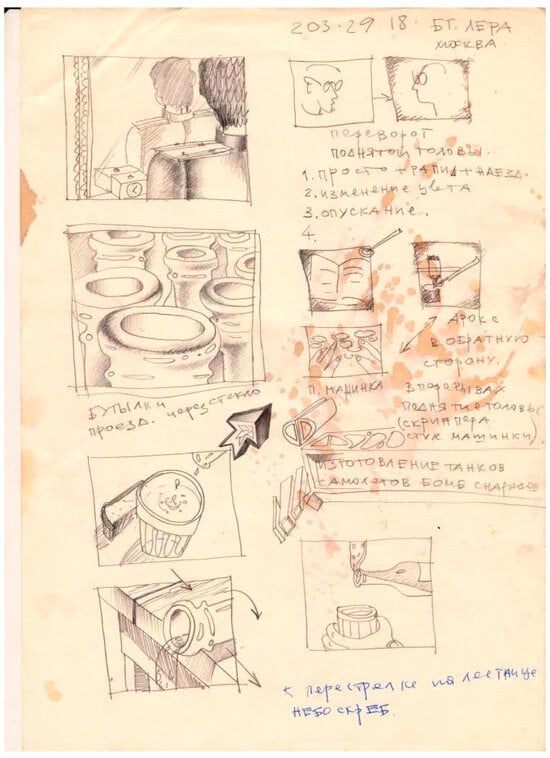 203·29 18· БТ. ЛЕРА
МОСКВА.
ПЕРЕВОРОТ
ПОДНЯТОЙ ГОЛОВЫ.
1. ПРОСТО + РАПИД + НАЕЗД.
2. ИЗМЕНЕНИЕ ЦВЕТА
3. ОПУСКАНИЕ..
4.
В ОБРАТНУЮ
СТОРОНУ.
П. МАШИНКА
ПОДНЯТИЕ ГОЛОВЫ
(СКРИП ПЕРА
СТУК МАШИНКИ).
БУТЫЛКИ
ПРОЕЗД. через стекло
ИЗГОТОВЛЕНИЕ ТАНКОВ
САМОЛЕТОВ БОМБ СНАРЯДОВ
К перестрелке на лестнице
НЕБОСКРЕБ.